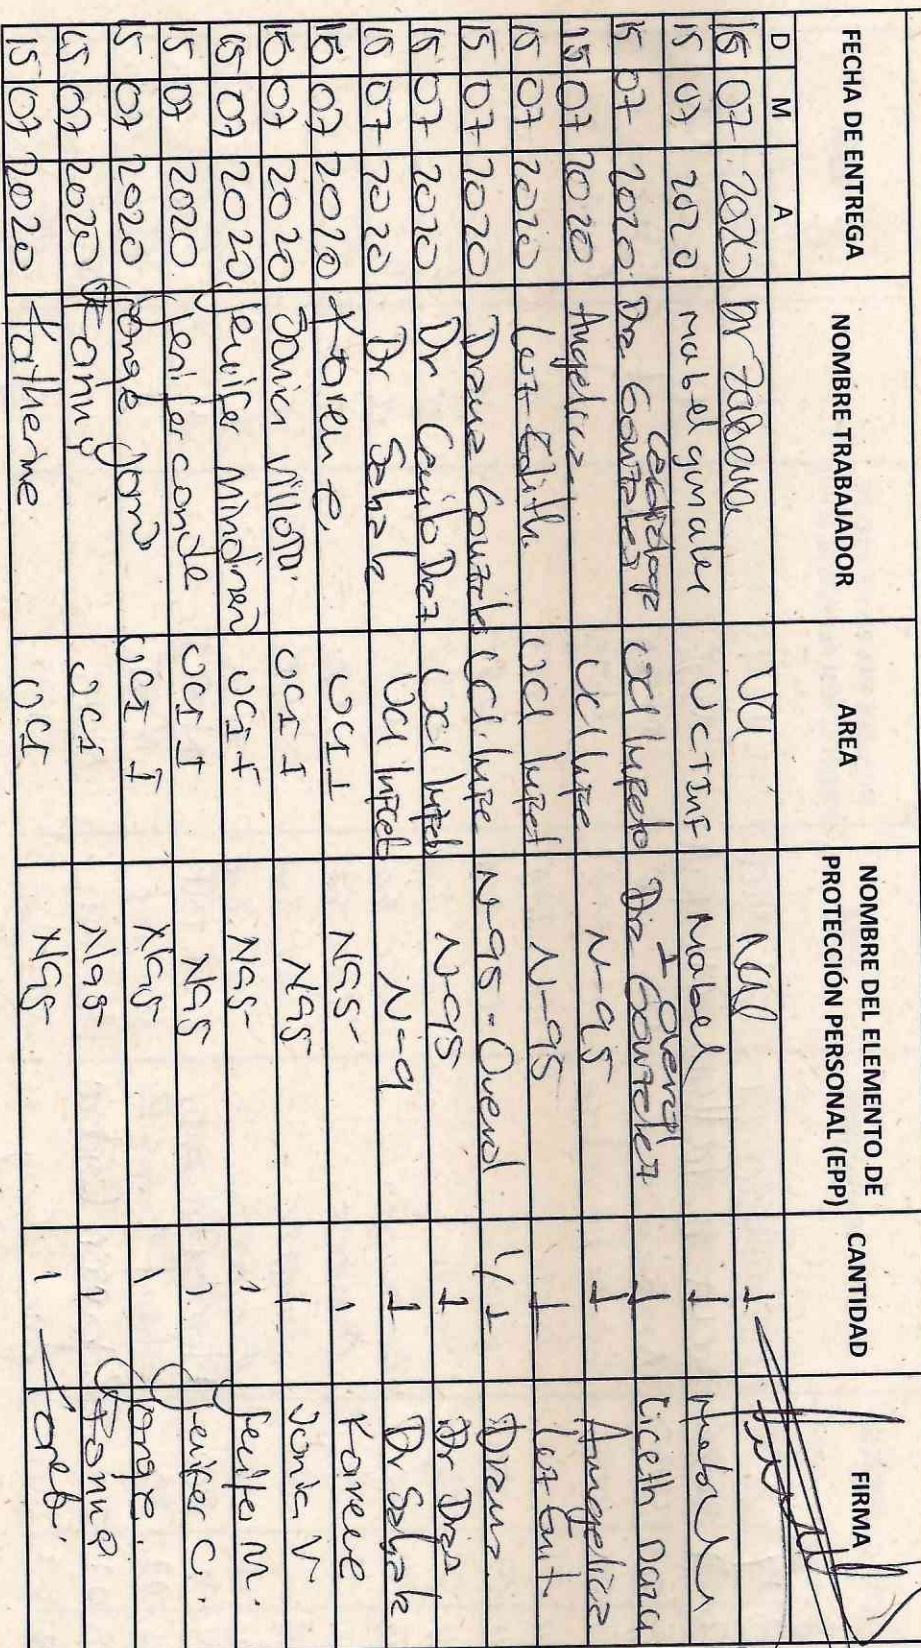 FECHA DE ENTREGA NOMBRE TRABAJADOR AREA NOMBRE DEL ELEMENTO DE PROTECCIÓN PERSONAL (EPP) CANTIDAD FIRMA
D M A
15 07 2020 Dr UCI 1
15 07 2020 Mabel UCI Inf Mabel 1
15 07 2020 Dra Gonzalez UCI 1 Overol Dra Gonzalez 1 Liceth Daza
15 07 2020 Angelica UCI Infe N-95 1 Angelica
15 07 2020 Luz Edith UCI Infect N-95 1
15 07 2020 Diana Gonzale UCI Infe N-95 - Overol 1/1 Diana
15 07 2020 Dr Camilo Diaz UCI Infect N-95 1 Dr Diaz
15 07 2020 Dr UCI Infect N-9 1 Dr
15 07 2020 Karen e UCI I N95 1
15 07 2020 Sonia Villota UCI I N95 1 Sonia V
15 07 2020 Jenifer UCI I N95 1 Jenifer M.
15 07 2020 Jenifer conde UCI I N95 1 Jenifer C.
15 07 2020 UCI I N95 1
15 07 2020 UCI N95 1
15 07 2020 Katherine UCI N95 1